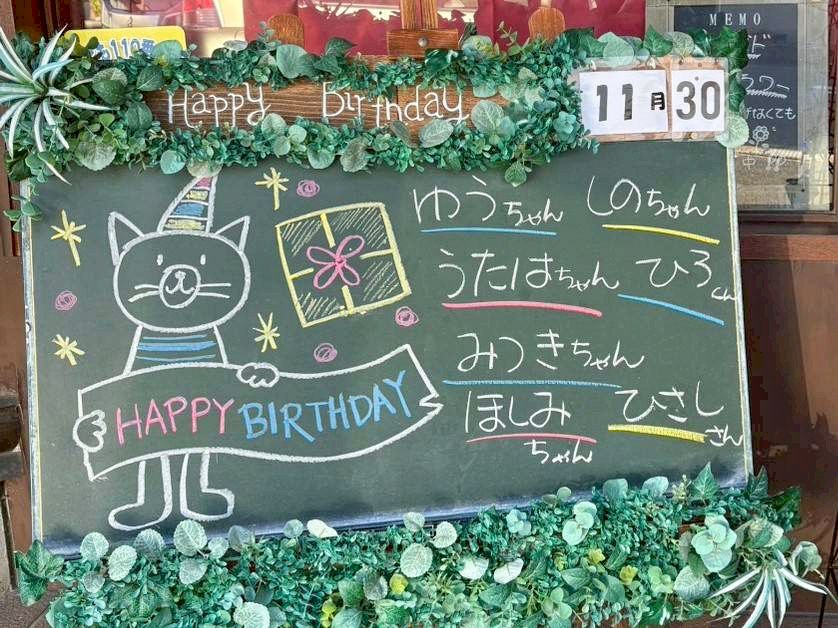 119番
Happy Birthday
11月 30
MEMO
ゆうちゃん しのちゃん
うたはちゃん ひろくん
みつきちゃん
ほしみちゃん ひさしさん
HAPPY BIRTHDAY